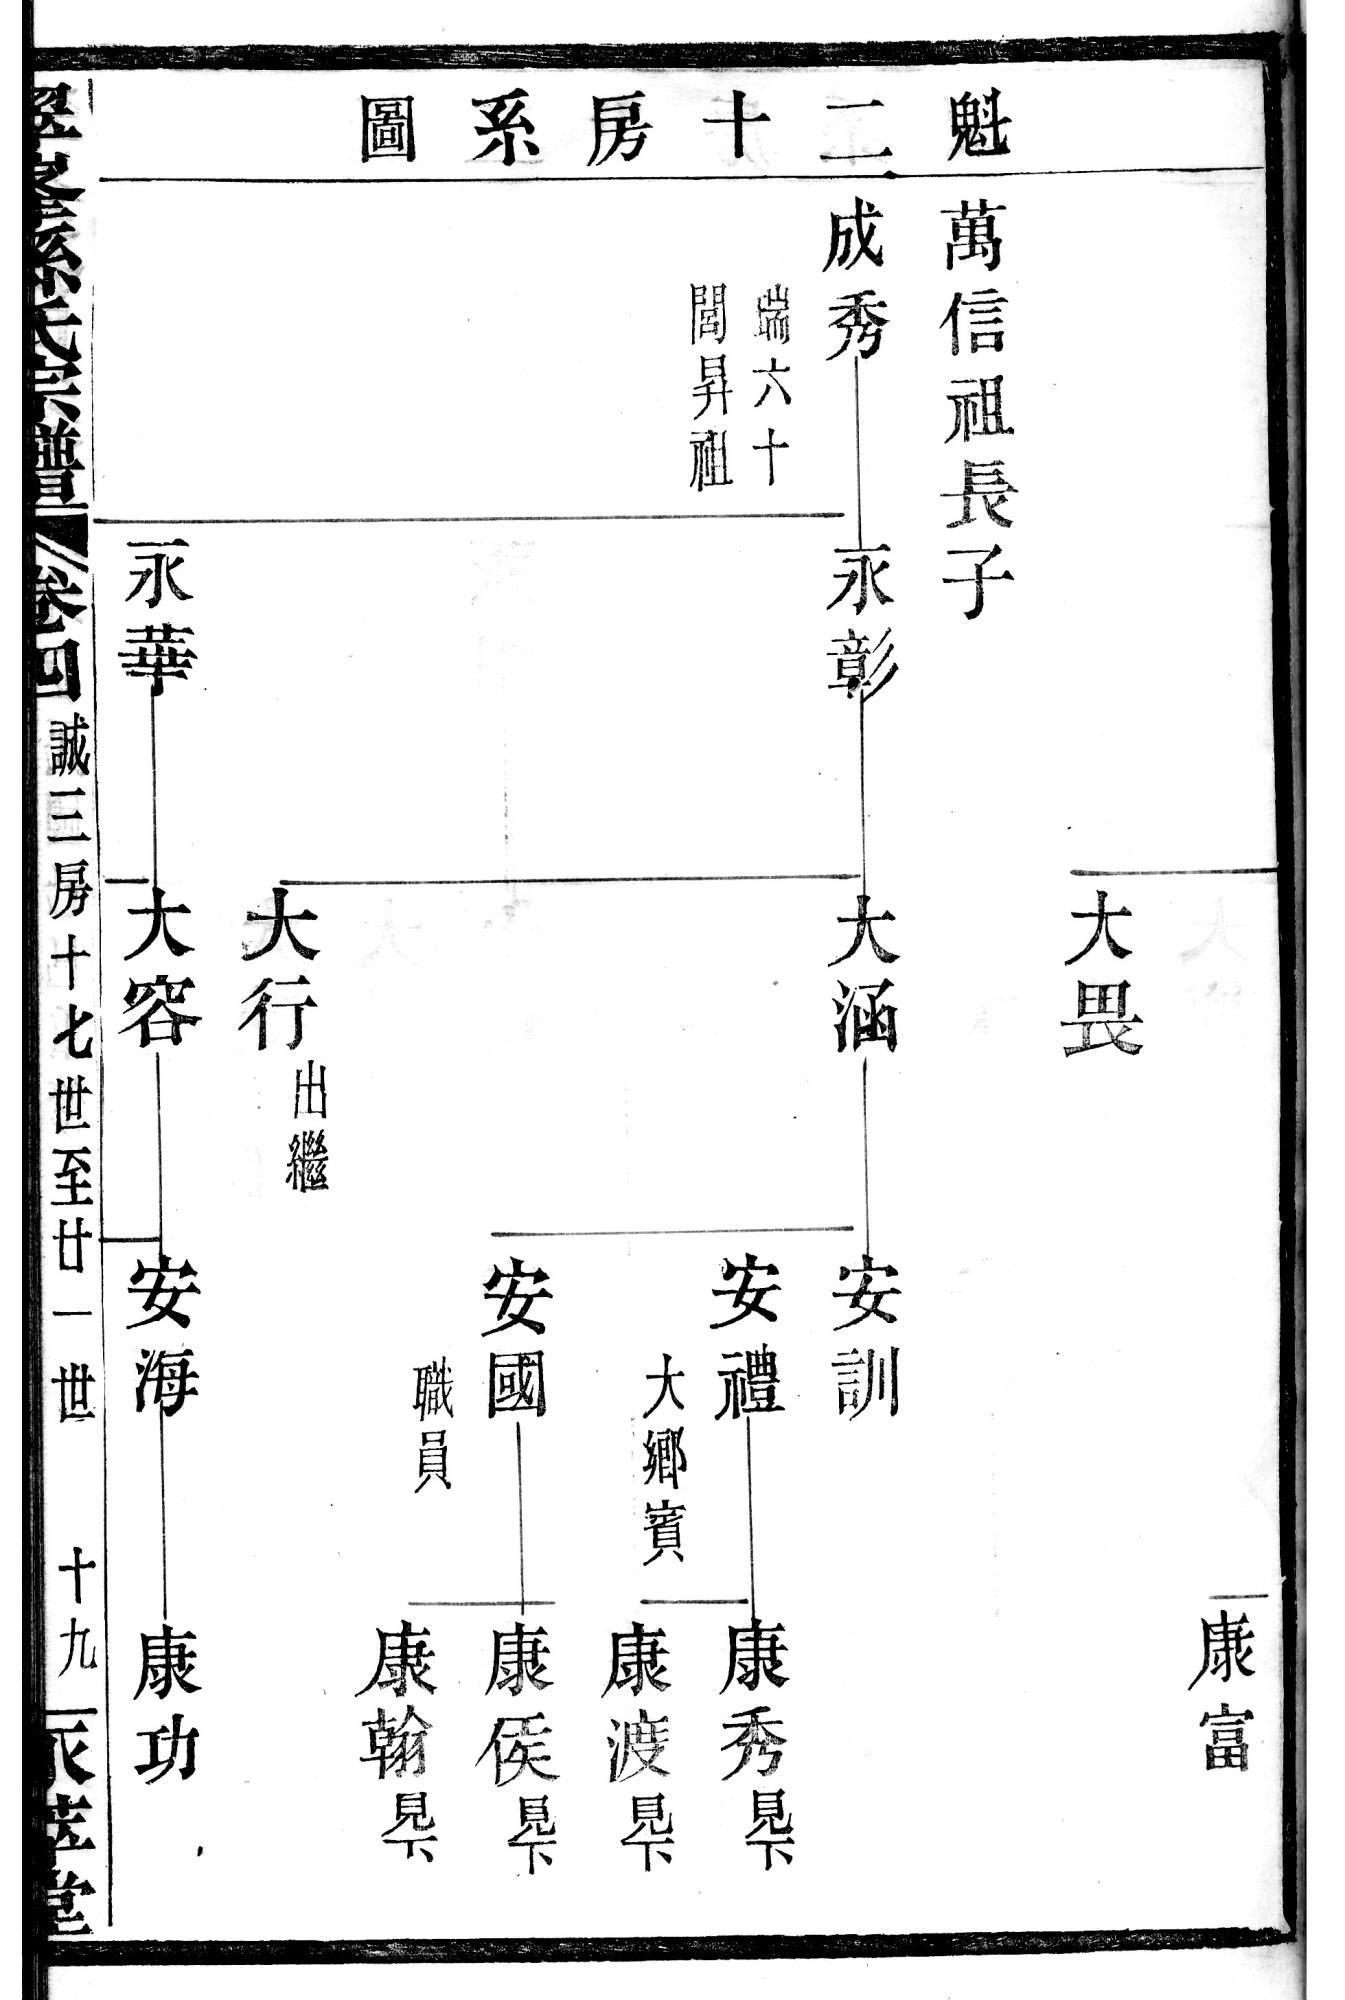 魁二十房系圖
萬信祖長子
成秀
端六十
閏昇祖
永彰
永華
大畏
大涵
大行
出繼
大容
安訓
安禮
大鄉賓
安國
職員
安海
康富
康秀見下
康渡見下
康侯見下
康翰見下
康功
孫氏宗譜
卷四
誠三房十七世至廿一世
十九